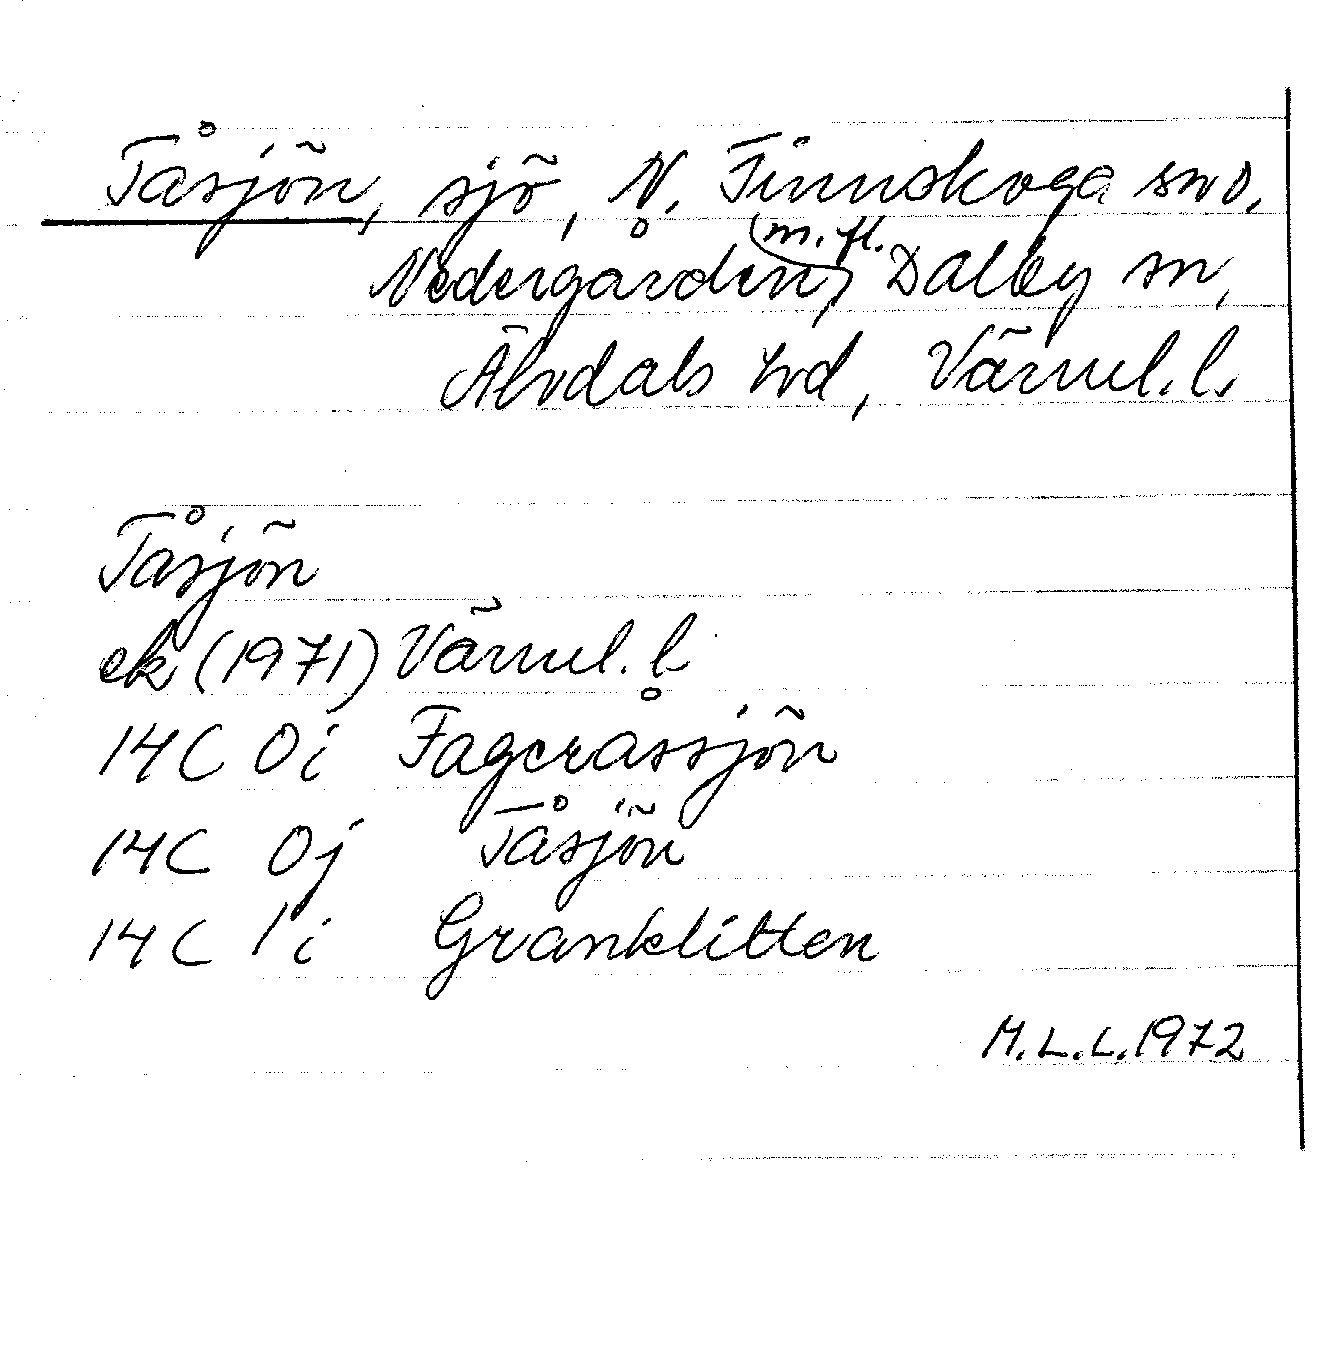 Tåsjön, sjö, N. Finnskoga sn o.
Nedergården m.fl., Dalby sn,
Älvdals hd, Värml. l.
Tåsjön
ek (1971) Värml. l.
14C 0i Fageråssjön
14C 0j Tåsjön
14C 1i Granklitten
M.L.L. 1972